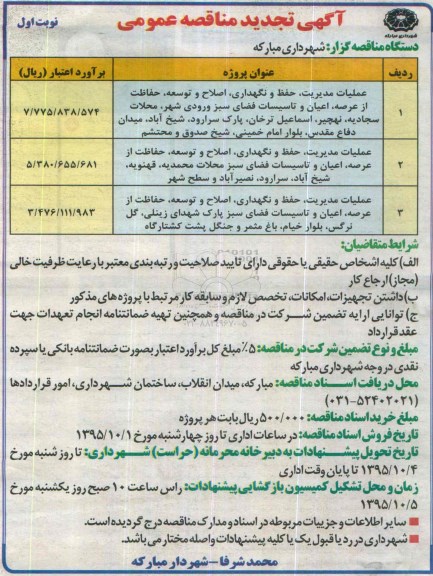 آگهی تجدید مناقصه عمومی
نوبت اول
شهرداری مبارکه
دستگاه مناقصه گزار: شهرداری مبارکه
ردیف
عنوان پروژه
برآورد اعتبار (ریال)
۱
عملیات مدیریت، حفظ و نگهداری، اصلاح و توسعه، حفاظت
از عرصه، اعیان و تاسیسات فضای سبز ورودی شهر، محلات
سجادیه، نهچیر، اسماعیل ترخان، پارک سرارود، شیخ آباد، میدان
دفاع مقدس، بلوار امام خمینی، شیخ صدوق و محتشم
۷/۷۷۵/۸۳۸/۵۷۴
۲
عملیات مدیریت، حفظ و نگهداری، اصلاح و توسعه، حفاظت از
عرصه، اعیان و تاسیسات فضای سبز محلات محمدیه، قهنویه،
شیخ آباد، سرارود، نصیرآباد و سطح شهر
۵/۳۸۰/۶۵۵/۶۸۱
۳
عملیات مدیریت، حفظ و نگهداری، اصلاح و توسعه، حفاظت از
عرصه، اعیان و تاسیسات فضای سبز پارک شهدای زینلی، گل
نرگس، بلوار خیام، باغ مثمر و جنگل پشت کشتارگاه
۳/۴۷۶/۱۱۱/۹۸۳
شرایط متقاضیان:
الف) کلیه اشخاص حقیقی یا حقوقی دارای تایید صلاحیت و رتبه بندی معتبر با رعایت ظرفیت خالی
(مجاز) ارجاع کار
ب) داشتن تجهیزات، امکانات، تخصص لازم و سابقه کار مرتبط با پروژه های مذکور
ج) توانایی ارایه تضمین شرکت در مناقصه و همچنین تهیه ضمانتنامه انجام تعهدات جهت
عقد قرارداد
مبلغ و نوع تضمین شرکت در مناقصه: ۵٪ مبلغ کل برآورد اعتبار بصورت ضمانتنامه بانکی یا سپرده
نقدی در وجه شهرداری مبارکه
محل دریافت اسناد مناقصه: مبارکه، میدان انقلاب، ساختمان شهرداری، امور قراردادها
(۰۳۱-۵۲۴۰۲۰۲۱)
مبلغ خرید اسناد مناقصه: ۵۰۰/۰۰۰ ریال بابت هر پروژه
تاریخ فروش اسناد مناقصه: در ساعات اداری تا روز چهارشنبه مورخ ۱۳۹۵/۱۰/۱
تاریخ تحویل پیشنهادات به دبیرخانه محرمانه (حراست) شهرداری: تا روز شنبه مورخ
۱۳۹۵/۱۰/۴ تا پایان وقت اداری
زمان و محل تشکیل کمیسیون بازگشایی پیشنهادات: راس ساعت ۱۰ صبح روز یکشنبه مورخ
۱۳۹۵/۱۰/۵
سایر اطلاعات و جزییات مربوطه در اسناد و مدارک مناقصه درج گردیده است.
شهرداری در رد یا قبول یک یا کلیه پیشنهادات واصله مختار می باشد.
محمد شرفا - شهردار مبارکه